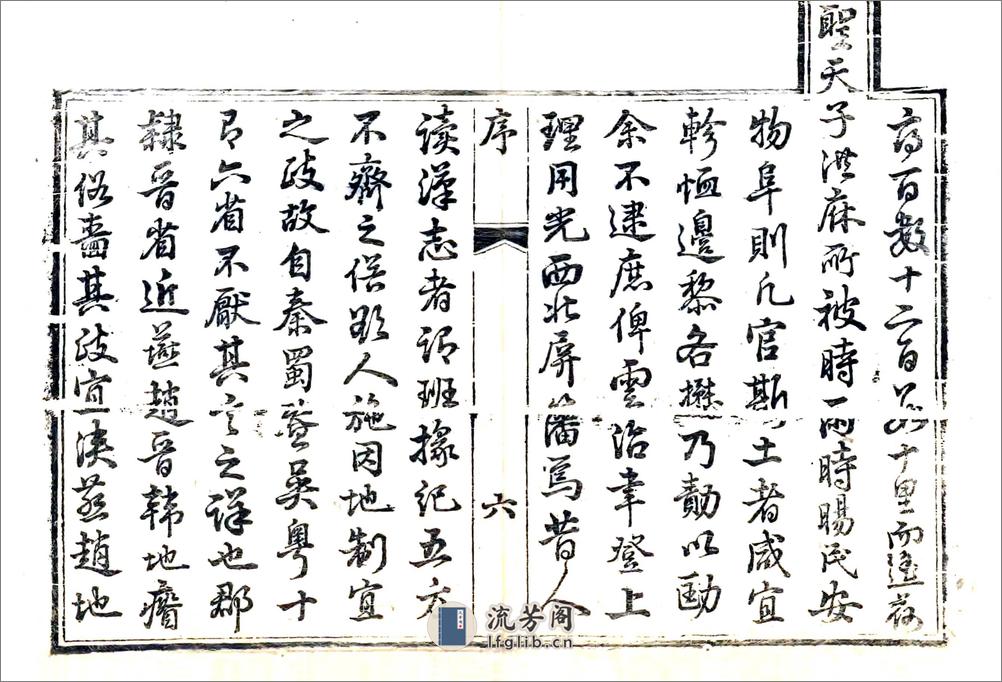 高百數十二百八十里而遙茲
聖天子洪庥所被時雨時暘民安
物阜則凡官斯土者咸宜
軫恤邊黎各懋乃勣以勖
余不逮庶俾雲治聿登上
理用光西北屏籓焉昔人
序
六
讀漢志者謂班掾紀五方
不齊之俗欲人施因地制宜
之政故自秦蜀暨吳粵十
有六省不厭其言之詳也郡
隸晉省近燕趙晉韓地瘠
其俗嗇其政宜燕趙地
流芳阁
lfglib.cn